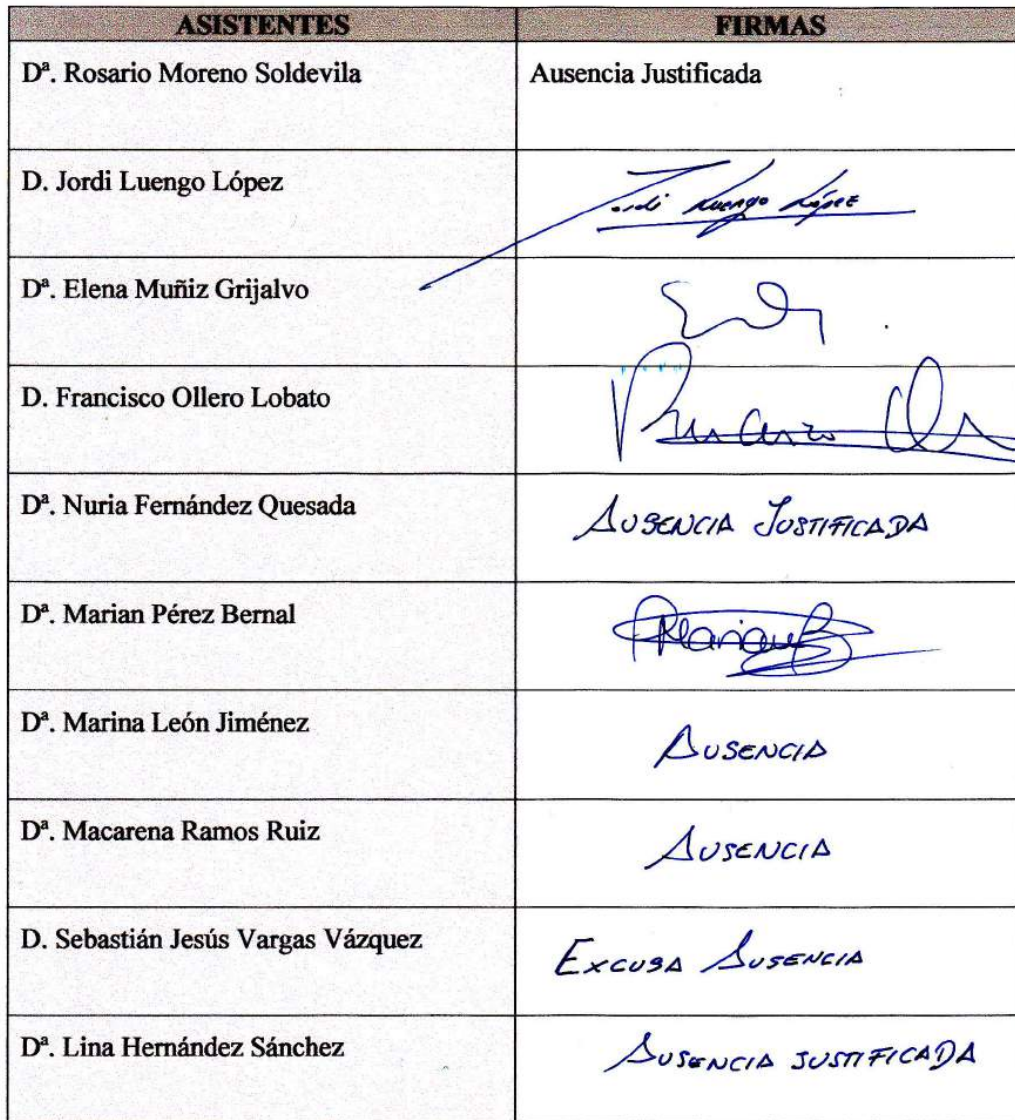 ASISTENTES FIRMAS
Dª. Rosario Moreno Soldevila Ausencia Justificada
D. Jordi Luengo López Jordi Luengo López
Dª. Elena Muñiz Grijalvo
D. Francisco Ollero Lobato
Dª. Nuria Fernández Quesada AUSENCIA JUSTIFICADA
Dª. Marian Pérez Bernal Marian
Dª. Marina León Jiménez AUSENCIA
Dª. Macarena Ramos Ruiz AUSENCIA
D. Sebastián Jesús Vargas Vázquez EXCUSA AUSENCIA
Dª. Lina Hernández Sánchez AUSENCIA JUSTIFICADA